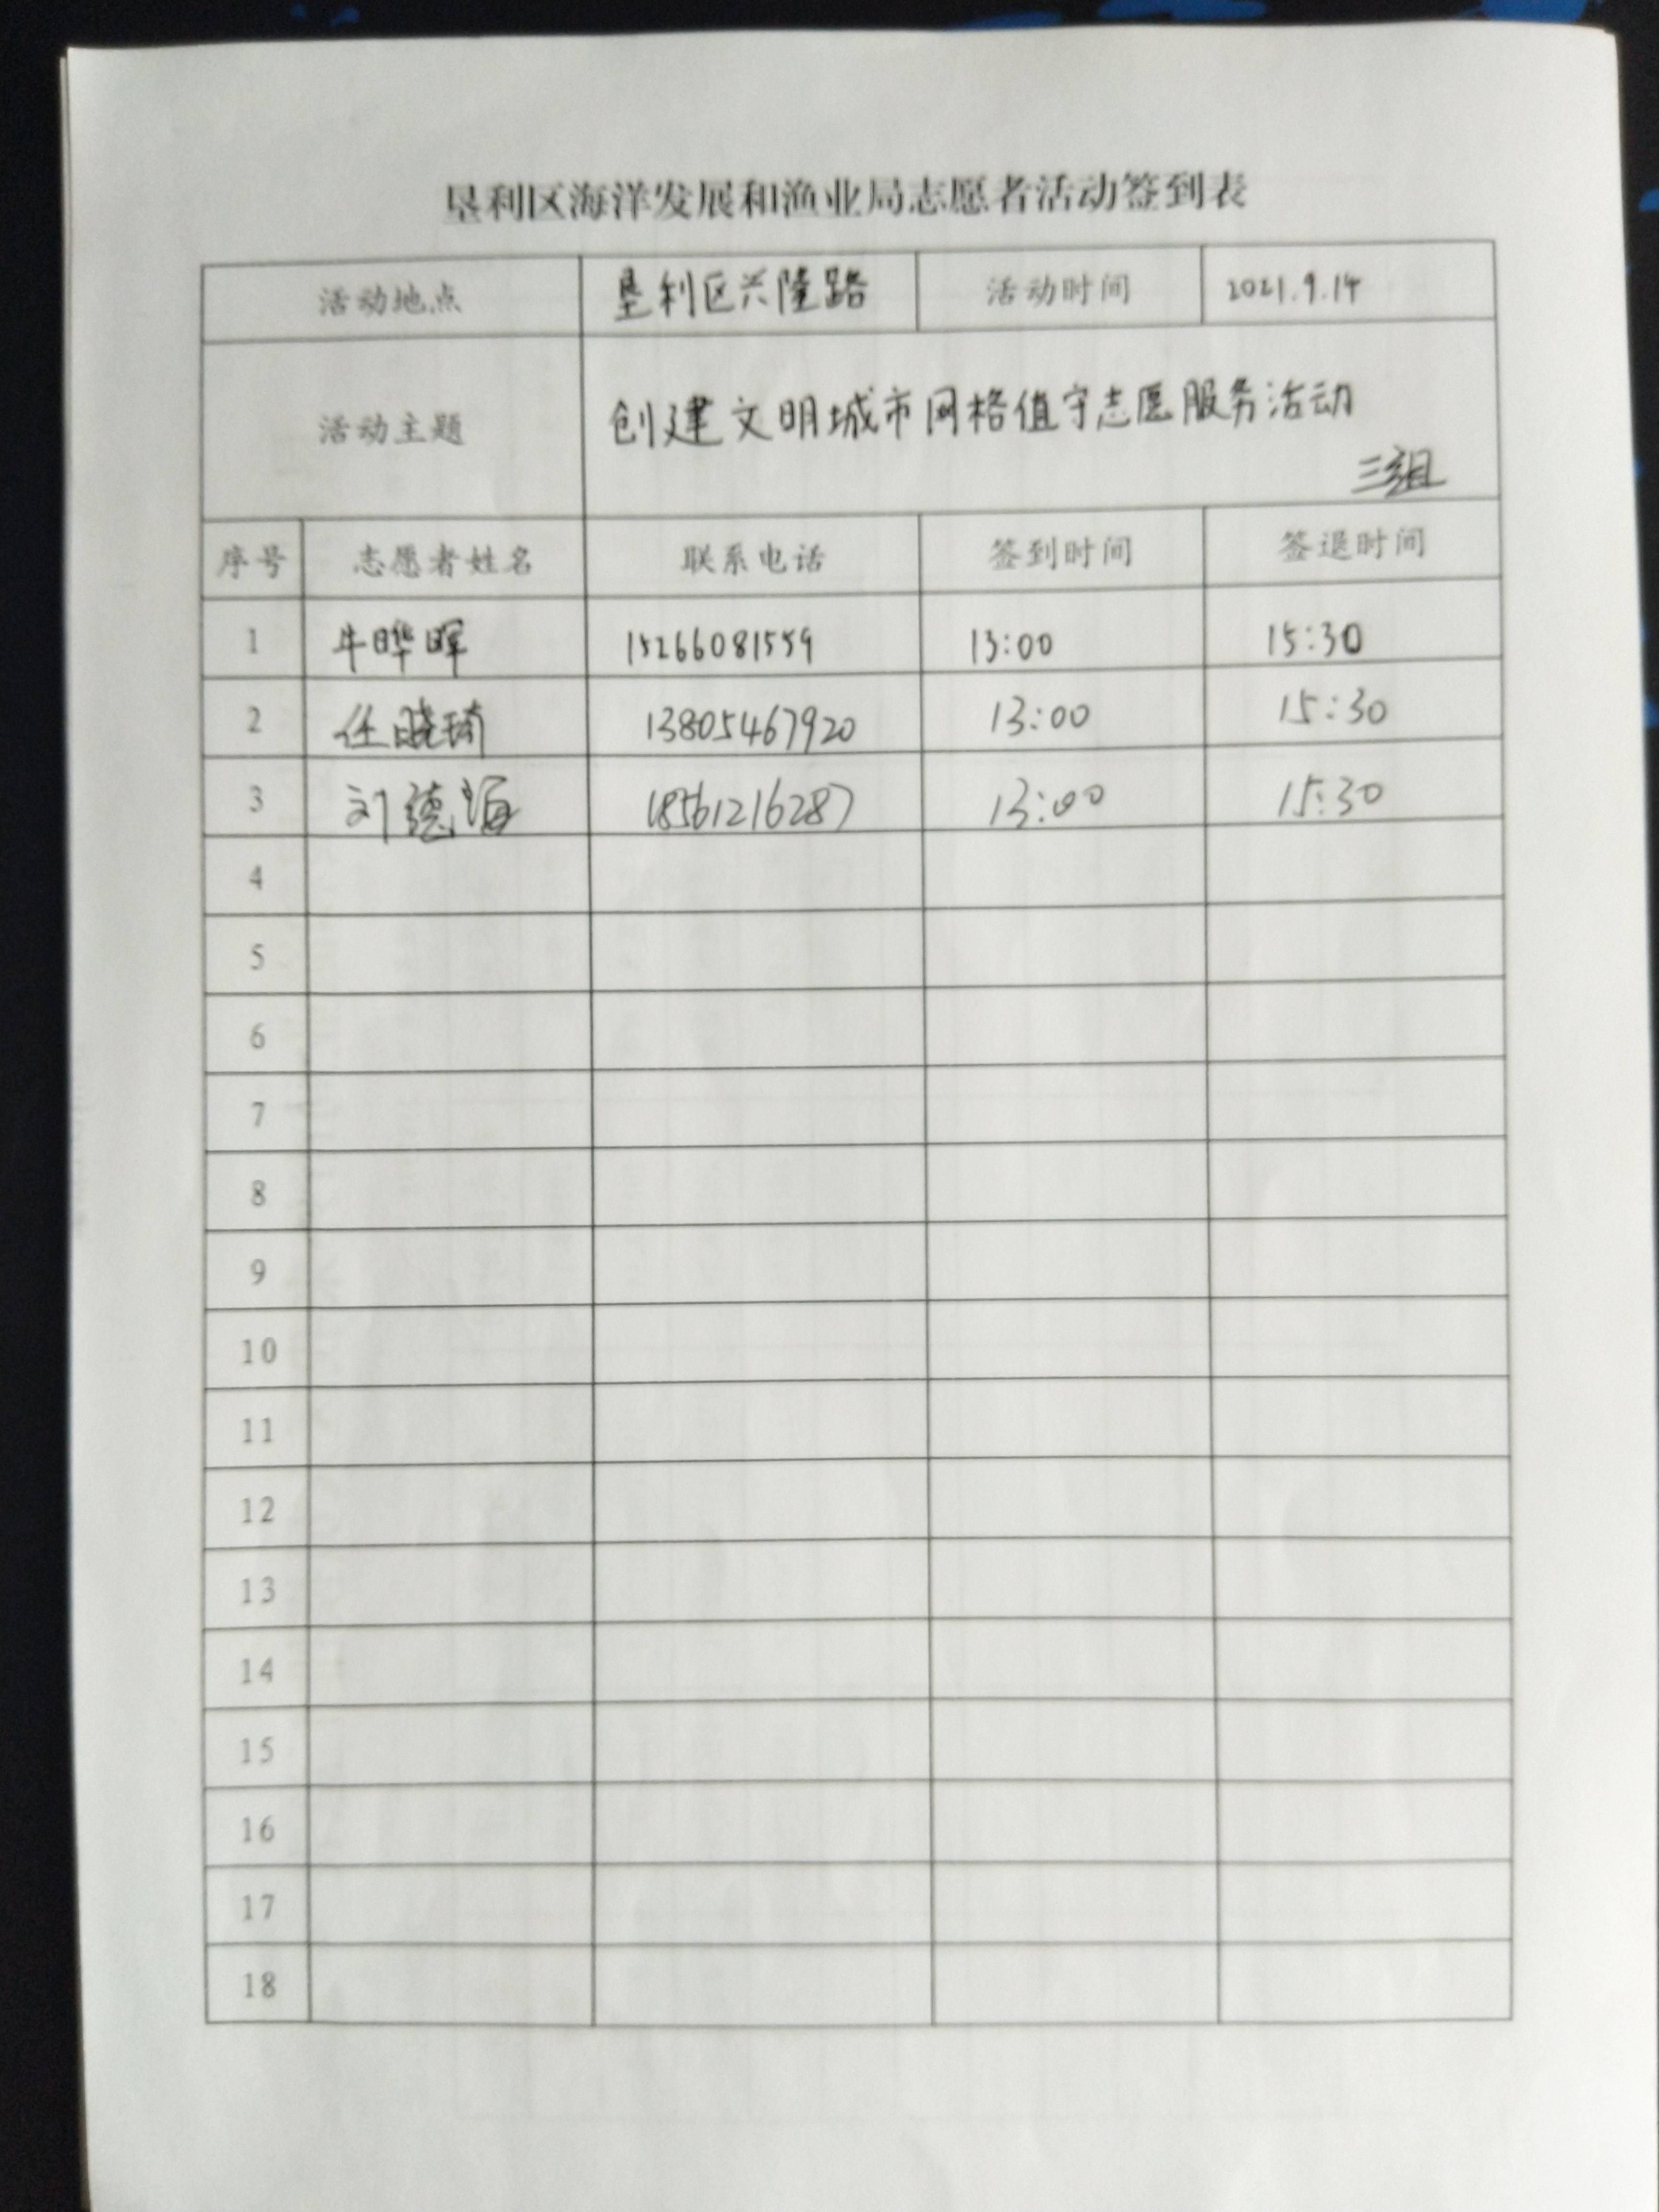 垦利区海洋发展和渔业局志愿者活动签到表
活动地点 垦利区兴隆路 活动时间 2021.9.14
活动主题 创建文明城市网格值守志愿服务活动
三组
序号 志愿者姓名 联系电话 签到时间 签退时间
1 牛晔晖 15266081559 13:00 15:30
2 任晓琦 13805467920 13:00 15:30
3 刘德海 18561216287 13:00 15:30
4
5
6
7
8
9
10
11
12
13
14
15
16
17
18